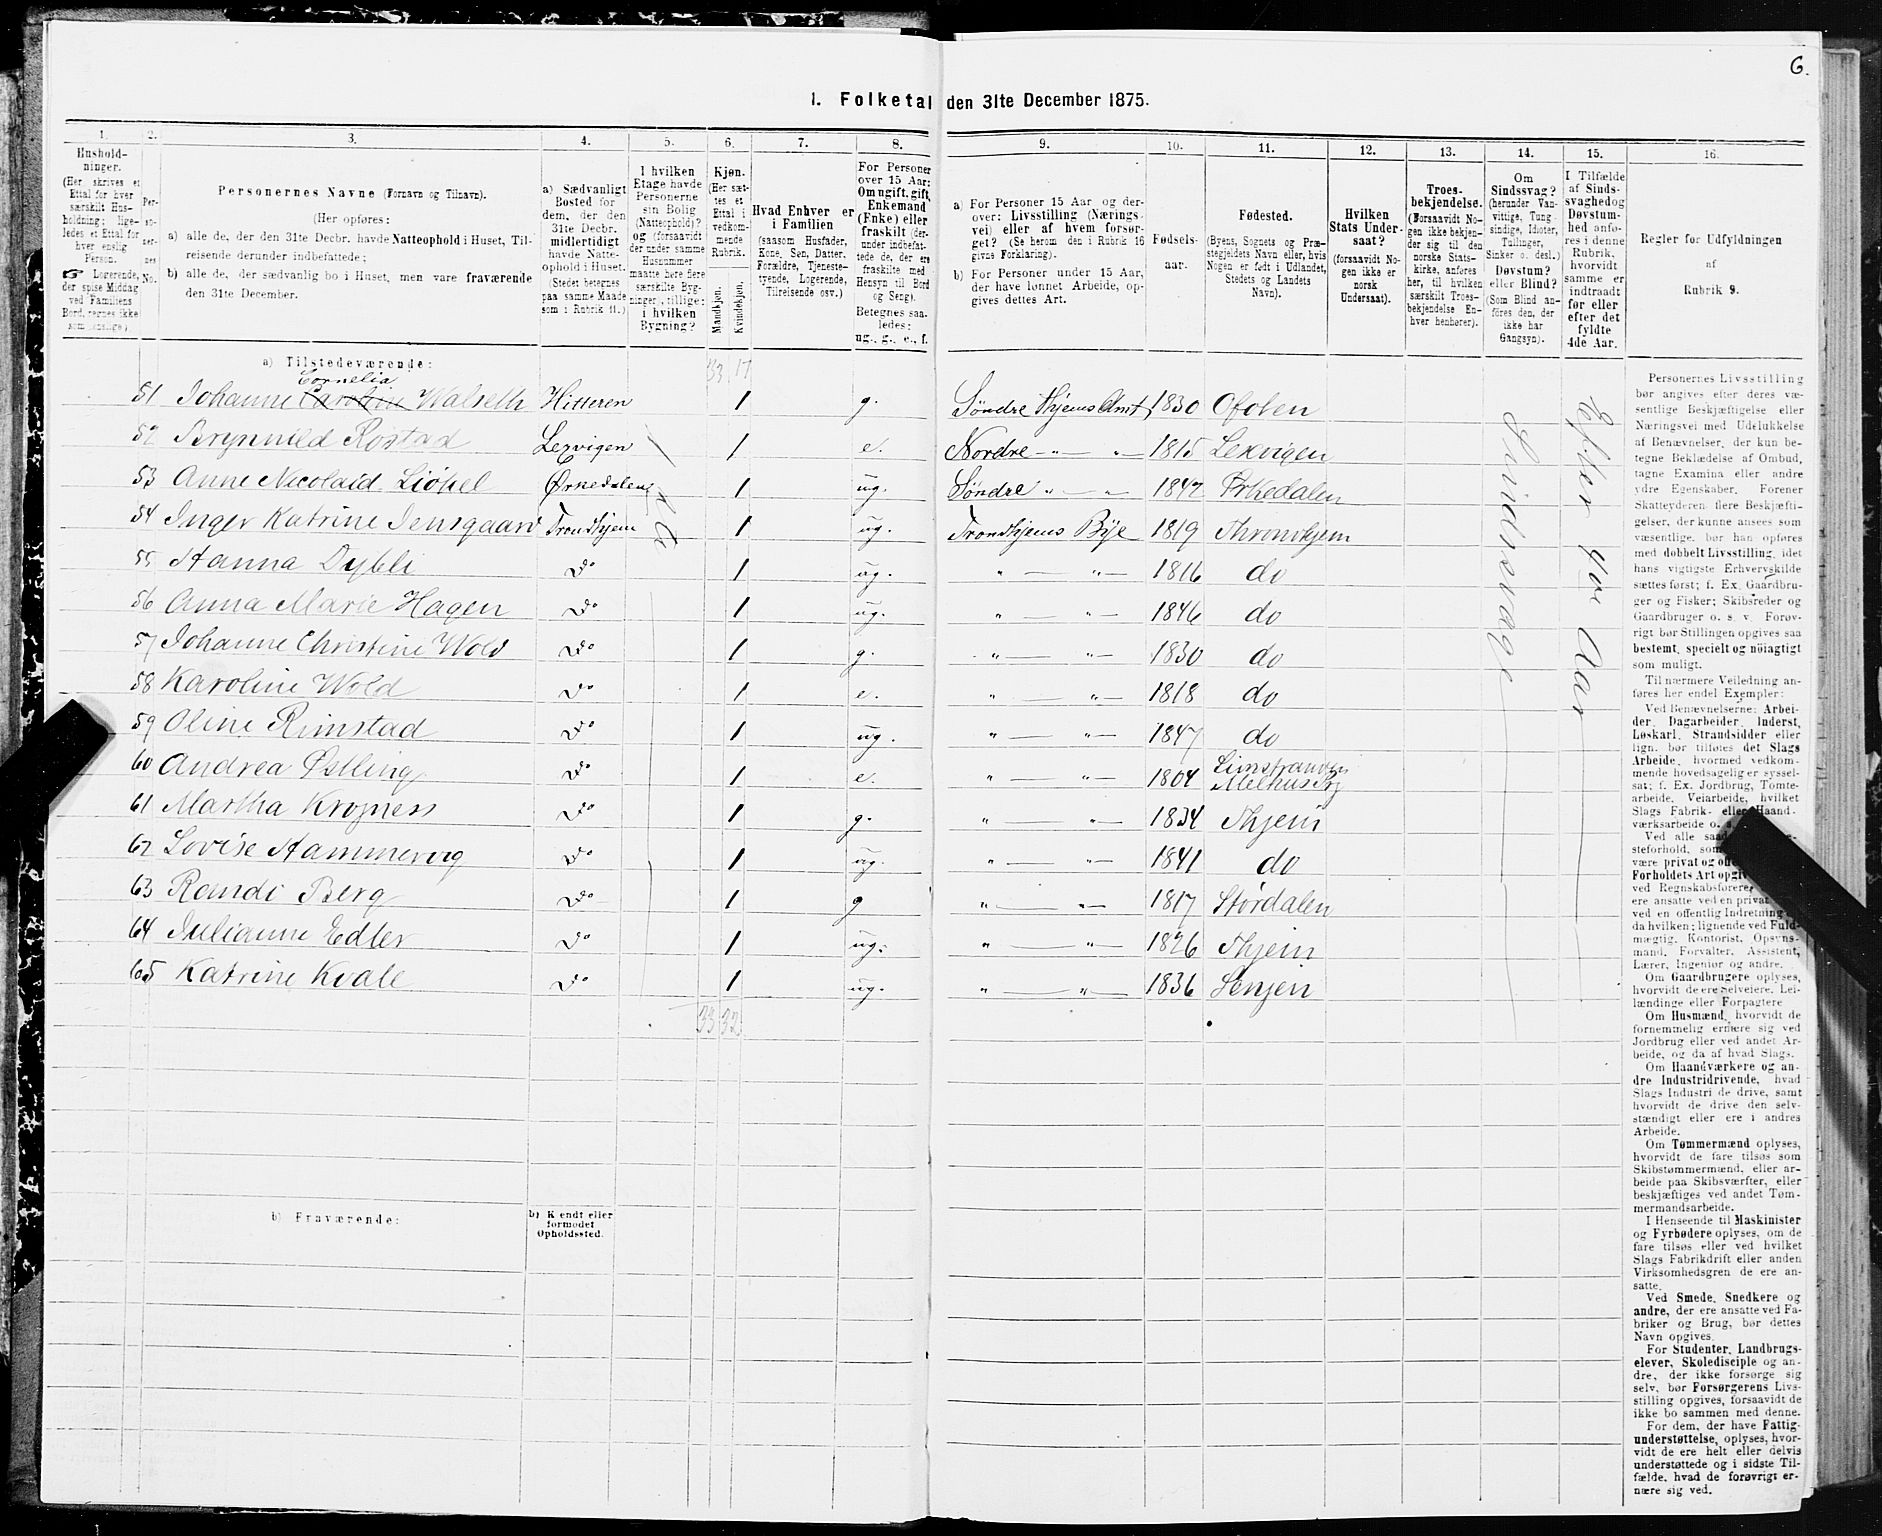 6.
1. Folketal den 31te December 1875.
1. 2. 3. 4. 5. 6. 7. 8. 9. 10. 11. 12. 13. 14. 15. 16.
Husholdninger.
(Her skrives et Ettal for hver særskilt Husholdning; ligeledes et Ettal for hver enslig Person.
☞ Logerende, der spise Middag ved Familiens Bord, regnes ikke som enslige)
Personernes No.
Personernes Navne (Fornavn og Tilnavn).
(Her opføres:
a) alle de, der den 31te Decbr. havde Natteophold i Huset, Tilreisende derunder indbefattede;
b) alle de, der sædvanlig bo i Huset, men vare fraværende den 31te December.
a) Sædvanligt Bosted for dem, der den 31te Decbr. midlertidigt havde Natteophold i Huset.
(Stedet betegnes paa samme Maade som i Rubrik 11.)
I hvilken Etage havde Personerne sin Bolig (Natteophold)? og (forsaavidt der under samme Husnummer maatte høre flere særskilte Bygninger, tillige: i hvilken Bygning?
Kjøn.
(Her sættes et Ettal i vedkommende Rubrik.
Mandkjøn.
Kvindekjøn.
Hvad Enhver er i Familien
(saasom Husfader, Kone, Søn, Datter, Forældre, Tjenestetyende, Logerende, Tilreisende osv.)
For Personer over 15 Aar: Om ugift, gift, Enkemand (Enke) eller fraskilt (derunder indbefattede de, der ere fraskilte med Hensyn til Bord og Seng).
Betegnes saaledes: ug., g., e., f.
a) For Personer 15 Aar og derover: Livsstilling (Næringsvei) eller af hvem forsørget? (Se herom den i Rubrik 16 givne Forklaring).
b) For Personer under 15 Aar, der have lønnet Arbeide, opgives dettes Art.
Fødselsaar.
Fødested.
(Byens, Sognets og Præstegjeldets Navn eller, hvis Nogen er født i Udlandet, Stedets og Landets Navn).
Hvilken Stats Undersaat?
(forsaavidt Nogen ikke er norsk Undersaat).
Troesbekjendelse.
(Forsaavidt Nogen ikke bekjender sig til den norske Statskirke, anføres her, til hvilken særskilt Troesbekjendelse Enhver henhører).
Om Sindssvag? (herunder Vanvittige, Tungsindige, Idioter, Tullinger, Sinker o. desl.) Døvstum? eller Blind? (Som Blind anføres den, der ikke har Gangsyn).
I Tilfælde af Sindssvaghed og Døvstumhed anføres i denne Rubrik, hvorvidt samme er indtraadt før eller efter det fyldte 4de Aar.
Regler for Udfyldningen
af
Rubrik 9.
a) Tilstedeværende:
33 17
Cornelia
51 Johanne Caroline Walseth Hitteren 1 g. Søndre Thjems Amt 1830 Ofoten
52 Brynnild Rostad Lexvigen 1 e. Nordre —„— „— 1815 Lexvigen
53 Anne Nicolaid Liökel Ørkedalen 1 ug. Søndre „ — „ — 1842 Ørkedalen
54 Inger Katrine Jensgaard Trondhjem 1 ug. Trondhjems Bye 1819 Throndhjem
55 Hanna Dybli Do 1 ug. „ — „ — 1816 do
56 Anna Marie Hagen Do 1 ug. „ — „ — 1846 do
57 Johanne Christine Wold Do 1 g. „ — „ — 1830 do
58 Karoline Wold Do 1 e. „ — „ — 1818 do
59 Oline Rimstad Do 1 ug. „ — „ — 1847 do
60 Andrea Østling Do 1 e. „ — „ — 1804 Melhus
61 Martha Krogness Do 1 g. „ — „ — 1834 Thjem
62 Lovise Hammervig Do 1 ug. „ — „ — 1841 do
63 Randi Berg Do 1 g „ — „ — 1817 Størdalen
64 Julianne Edler Do 1 ug. „ — „ — 1826 Thjem
65 Katrine Kvale Do 1 ug. „ — „ — 1836 Senjen
33 32
Sindssvage
Efter 4de Aar
b) Fraværende:
b) Kjendt eller formodet Opholdssted.
Personernes Livsstilling
bør angives efter deres væ-
sentlige Beskjæftigelse eller
Næringsvei med Udelukkelse
af Benævnelser, der kun be-
tegne Beklædelse af Ombud,
tagne Examina eller andre
ydre Egenskaber. Forener
Skatteyderen flere Beskjæfti-
gelser, der kunne ansees som
væsentlige, bør han opføres
med dobbelt Livsstilling, idet
hans vigtigste Erhvervskilde
sættes først; f. Ex. Gaardbru-
ger og Fisker; Skibsreder og
Gaardbruger o. s. v. Forøv-
rigt bør Stillingen opgives saa
bestemt, specielt og nöiagtigt
som muligt.
Til nærmere Veiledning an-
føres her endel Exempler:
Ved Benævnelserne: Arbei-
der, Dagarbeider, Inderst,
Løskarl, Strandsidder eller
lign. bør tilføies det Slags
Arbeide, hvormed vedkom-
mende hovedsagelig er syssel-
sat; f. Ex. Jordbrug, Tomte-
arbeide, Veiarbeide, hvilket
Slags Fabrik- eller Haand-
værksarbeide o. s.
Ved alle
steforhold, som
være privat og off
Forholdets Art opgiv
ved Regnskabsførere,
ere ansatte ved en privat
ved en offentlig Indretning
da hvilken; lignende ved Fuld-
mægtig, Kontorist, Opsyns-
mand, Forvalter, Assistent,
Lærer, Ingeniør og andre.
Om Gaardbrugere oplyses,
hvorvidt de ere Selveiere, Lei-
lændinge eller Forpagtere
Om Husmænd, hvorvidt de
fornemmelig ernære sig ved
Jordbrug eller ved andet Ar-
beide, og da af hvad Slags.
Om Haandværkere og an-
dre Industridrivende, hvad
Slags Industri de drive, samt
hvorvidt de drive den selv-
stændigt eller ere i andres
Arbeide.
Om Tømmermænd oplyses,
hvorvidt de fare tilsøs som
Skibstømmermænd, eller ar-
beide paa Skibsværfter, eller
beskjæftiges ved andet Tøm-
mermandsarbeide.
I Henseende til Maskinister
og Fyrbødere oplyses, om de
fare tilsøs eller ved hvilket
Slags Fabrikdrift eller anden
Virksomhedsgren de ere an-
satte.
Ved Smede, Snedkere og
andre, der ere ansatte ved Fa-
briker og Brug, bør dettes
Navn opgives.
For Studenter, Landbrugs-
elever, Skoledisciple og an-
dre, der ikke forsørge sig
selv, bør Forsørgerens Livs-
stilling opgives, forsaavidt de
ikke bo sammen med denne.
For dem, der have Fattig-
understøttelse, oplyses, hvor-
vidt de ere helt eller delvis
understøttede og i sidste Til-
fælde, hvad de forøvrigt er-
nære sig ved.